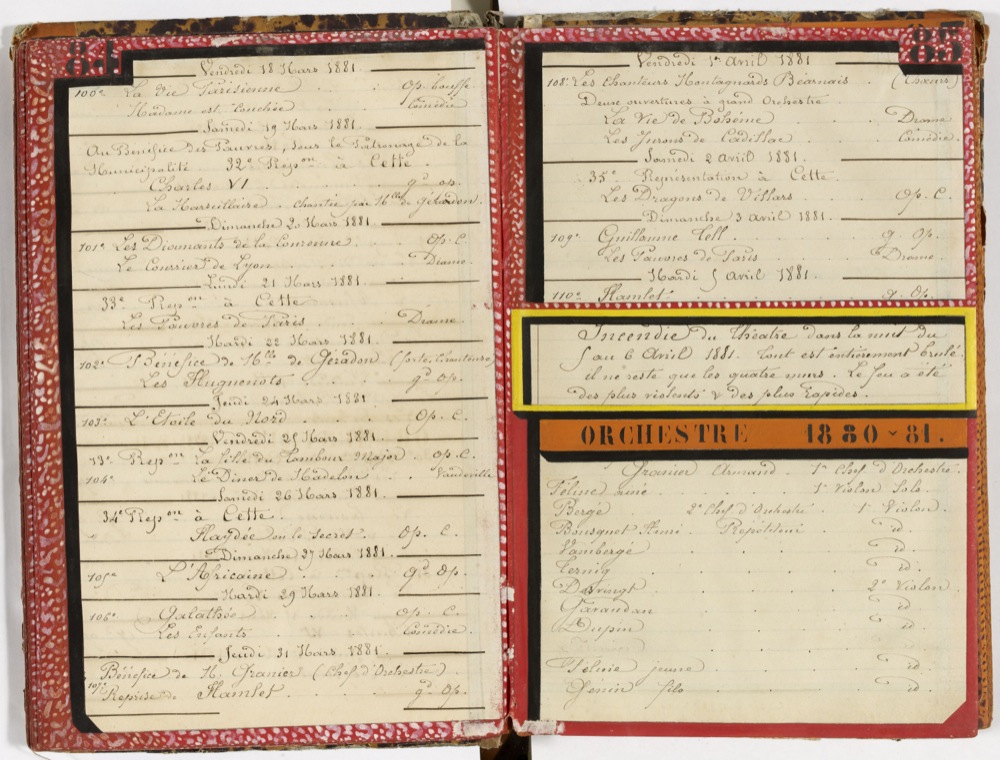 84.
Vendredi 18 Mars 1881.
100e La Vie Parisienne . . . Op. bouffe
Madame est Couchée . . . Comédie
Samedi 19 Mars 1881.
Au Bénéfice des Pauvres, sous le Patronage de la
Municipalité. 32e Repon à Cette.
Charles VI . . . gd op.
La Marseillaise. chantée par Mlle de Géradon.
Dimanche 20 Mars 1881.
101e Les Diamants de la Couronne. . . Op. C.
Le Courrier de Lyon . . . Drame.
Lundi 21 Mars 1881.
33e Repon à Cette
Les Pauvres de Paris . . . Drame
Mardi 22 Mars 1881.
102e Bénéfice de Mlle de Géradon (forte Chanteuse)
Les Huguenots . . . gd Op.
Jeudi 24 Mars 1881
103e L'Etoile du Nord . . . Op. C.
Vendredi 25 Mars 1881.
Repon La fille du Tambour Major . Op. C.
104e Le Diner de Madelon . . Vaudeville
Samedi 26 Mars 1881.
34e Repon à Cette.
Haydée ou le Secret. . Op. C.
Dimanche 27 Mars 1881.
105e L'Africaine . . . gd Op.
Mardi 29 Mars 1881.
106e Galathée . . . Op. C.
Les Enfants . . . Comédie.
Jeudi 31 Mars 1881.
Bénéfice de M. Granier (Chef d'Orchestre)
107e Reprise de Hamlet . . . gd Op.
85.
Vendredi 1er Avril 1881
108e Les Chanteurs Montagnards Béarnais . (Choeurs)
Deux ouvertures à grand Orchestre
La Vie de Bohême . . . Drame
Les Jurons de Cadillac . . . Comédie.
Samedi 2 avril 1881.
35e Représentation à Cette.
Les Dragons de Villars . . . Op. C.
Dimanche 3 avril 1881.
109e Guillaume Tell . . . g. Op.
Les Pauvres de Paris . . . Drame.
Mardi 5 Avril 1881.
110e Hamlet . . . g. Op.
Incendie du théâtre dans la nuit du
5 au 6 Avril 1881. tout est entièrement brulé
il ne reste que les quatre murs. Le feu a été
des plus violents & des plus rapides.
ORCHESTRE 1880-81.
Granier Armand - 1er Chef d'Orchestre.
Féline ainé . . . 1er Violon Solo.
Bergé . 2e Chef d'Orchestre 1er Violon.
Bousquet Henri Répétiteur id.
Vamberge . . . id.
. . . id.
. . . 2e Violon.
Garaudan . . . id.
Dupin . . . id.
Féline jeune . . . id.
Génin fils . . . id.